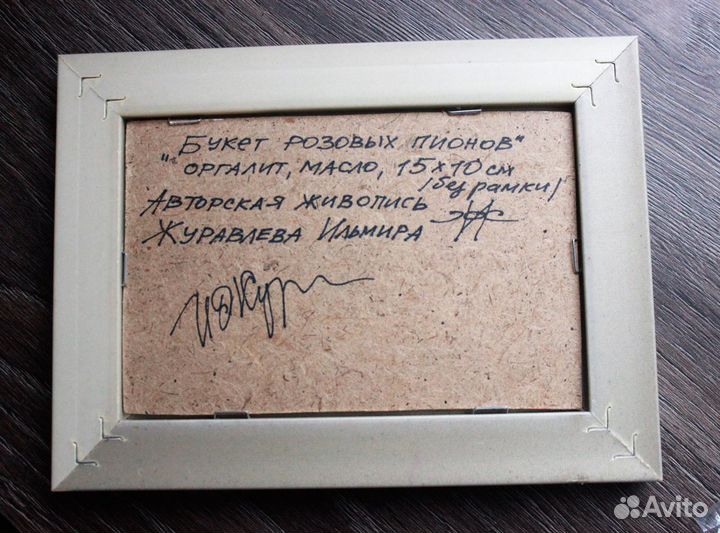 "Букет розовых пионов"
оргалит, масло, 15х10 см
/без рамки/
Авторская живопись
Журавлева Ильмира
Avito